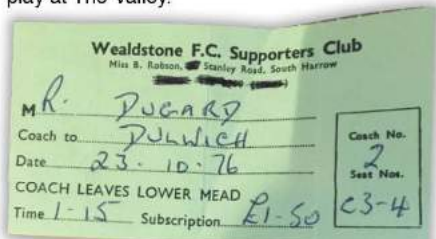 play at The Valley.
Wealdstone F.C. Supporters Club
Miss B. Robson, Stanley Road, South Harrow
M R. DUGARD
Coach to DULWICH
Date 23. 10. 76
COACH LEAVES LOWER MEAD
Time 1-15 Subscription £1-50
Coach No.
2
Seat Nos.
C3-4